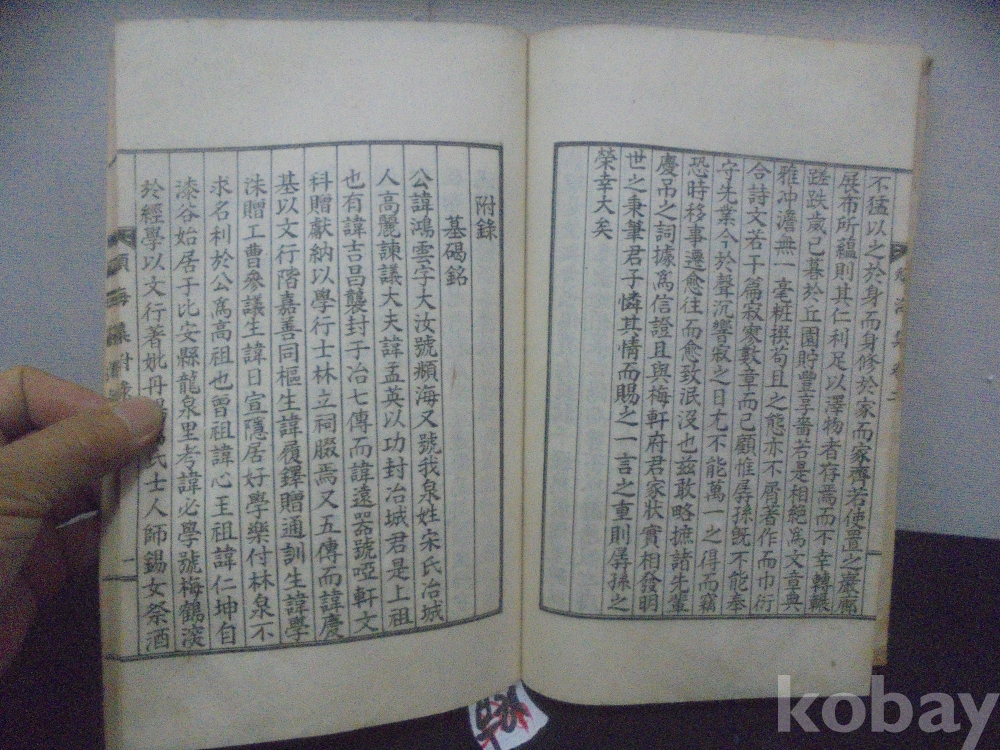 不猛以之於身而身修於家而家齊若使置之巖廊
展布所蘊則其仁利足以澤物者存焉而不幸轗軻
蹉跌歲已暮於丘園貯豐享嗇若是相絶爲文章典
雅冲澹無一毫粧撰苟且之態亦不屑著作而巾衍
合詩文若干篇寂寥數章而已顧惟孱孫旣不能奉
守先業今於聲沉響寂之日尤不能萬一之得而竊
恐時移事遷愈往而愈致泯沒也玆敢略摭諸先輩
慶吊之詞據爲信證且與梅軒府君家狀實相發明
世之秉筆君子憐其情而賜之一言之重則孱孫之
榮幸大矣
附錄
墓碣銘
公諱鴻雲字大汝號瀕海又號我泉姓宋氏冶城
人高麗諫議大夫諱孟英以功封冶城君是上祖
也有諱吉昌襲封于冶七傳而諱遠器號啞軒文
科贈獻納以學行士林立祠腏焉又五傳而諱慶
基以文行階嘉善同樞生諱履鐸贈通訓生諱學
洙贈工曹參議生諱日宣隱居好學樂付林泉不
求名利於公爲高祖也曾祖諱心玉祖諱仁坤自
漆谷始居于比安縣龍泉里考諱必學號梅鶴淡
於經學以文行著妣丹 氏士人師錫女祭酒
kobay